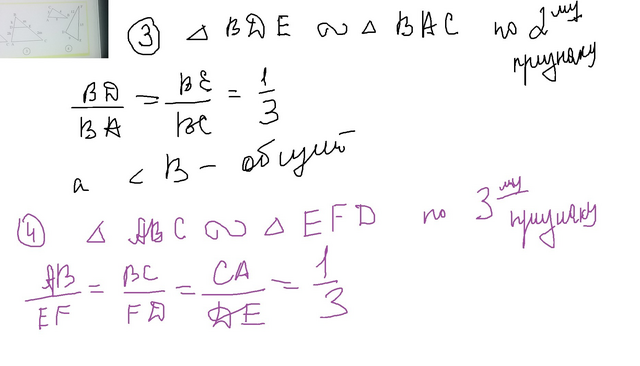 ③ △ BDE ∾ △ BAC по 2му признаку
BD/BA = BE/BC = 1/3
а < B - общий
④ △ ABC ∾ △ EFD по 3му признаку
AB/EF = BC/FD = CA/DE = 1/3